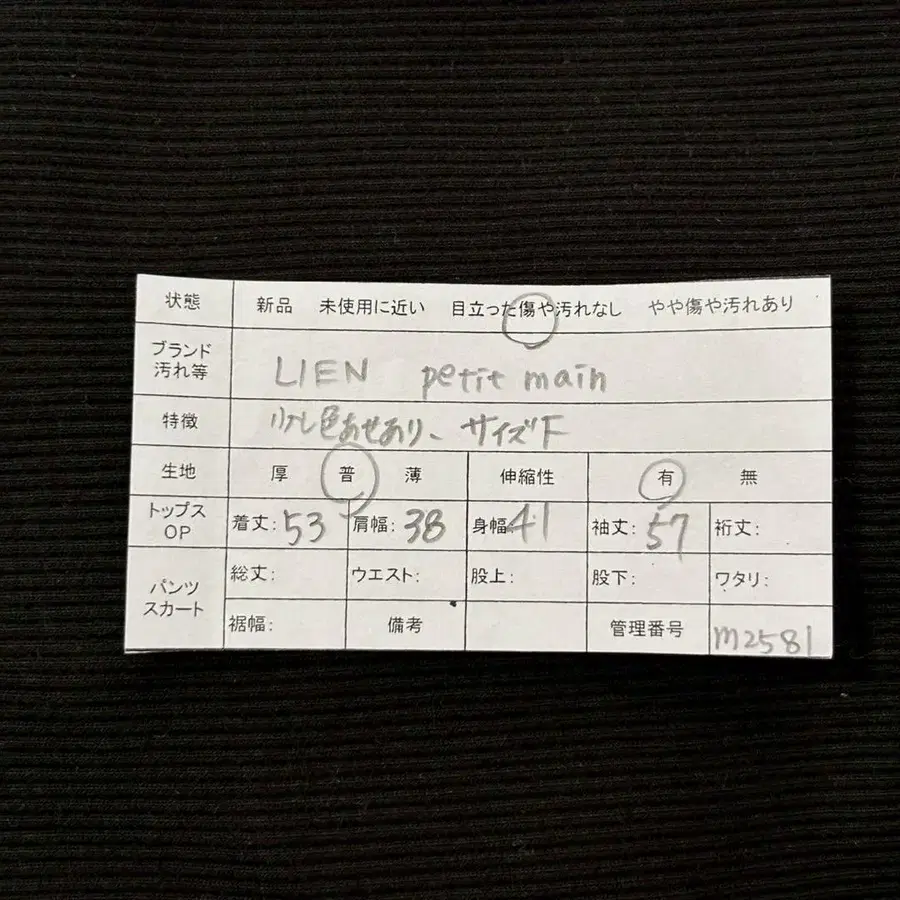 状態 新品 未使用に近い 目立った傷や汚れなし やや傷や汚れあり
ブランド
汚れ等
LIEN petit main
特徴 少し色あせあり、サイズF
生地 厚 普 薄 伸縮性 有 無
トップス
OP
着丈: 53 肩幅: 38 身幅 41 袖丈: 57 裄丈:
パンツ
スカート
総丈: ウエスト: 股上: 股下: ワタリ:
裾幅: 備考 管理番号 m2581